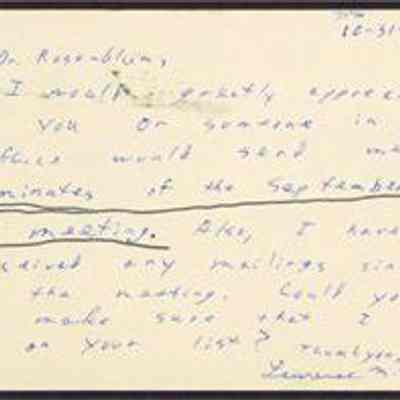 10-31-
Dr. Rosenblum,
I would greatly apprec
you or someone in
ffice would send me
minutes of the September
meeting. Also, I have
ceived any mailings sinc
the meeting. Could yo
make sure that I
on your list? Thank you,
Lawrence M.